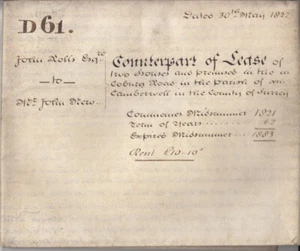 D61.
Dated 30th May 1822
John Rolls Esqre
to
Mr. John Drew
Counterpart of Lease of
two Houses and premises in the
Coburg Road in the Parish of
Camberwell in the County of Surrey
Commences Midsummer 1821
Term of Years 62
Expires Midsummer 1883
Rent £10-10s